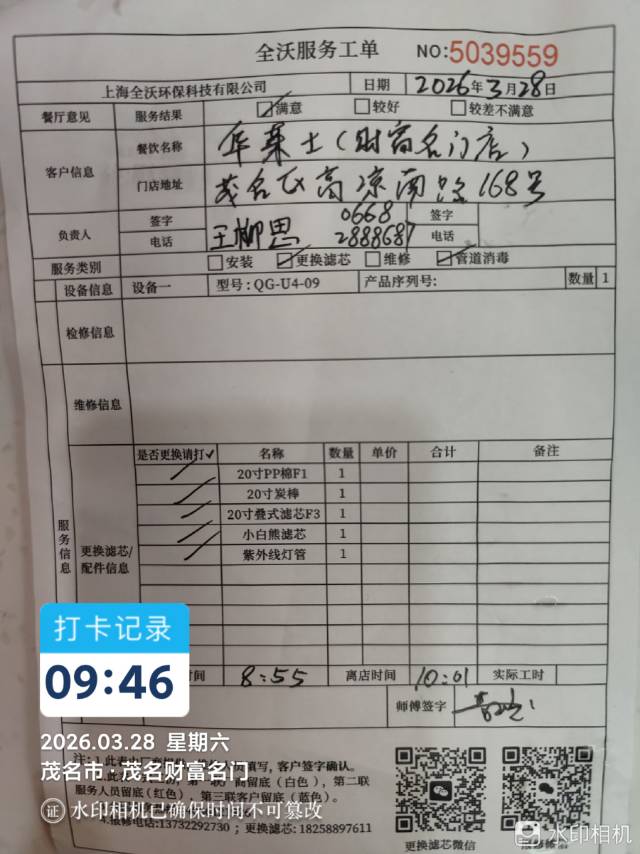 全沃服务工单 NO:5039559
上海全沃环保科技有限公司 日期 2026年3月28日
餐厅意见 服务结果 满意 较好 较差不满意
客户信息 餐饮名称 华莱士(财富名门店)
门店地址 茂名区高凉南路168号
负责人 签字 电话 王柳思 0668 2888687 签字 电话
服务类别 安装 更换滤芯 维修 管道消毒
设备信息 设备一 型号:QG-U4-09 产品序列号: 数量 1
检修信息
维修信息
服务信息
更换滤芯/配件信息
是否更换请打✓ 名称 数量 单价 合计 备注
20寸PP棉F1 1
20寸炭棒 1
20寸叠式滤芯F3 1
小白熊滤芯 1
紫外线灯管 1
时间 8:55 离店时间 10:01 实际工时
师傅签字
打卡记录
09:46
2026.03.28 星期六
茂名市·茂名财富名门
证 水印相机已确保时间不可篡改
注:1.此表由
填写,客户签字确认。
留底(白色),第二联
服务人员留底(红色),第三联客户留底(蓝色)。
4.报修电话:13732292730;更换滤芯:18258897611
更换滤芯微信
水印相机